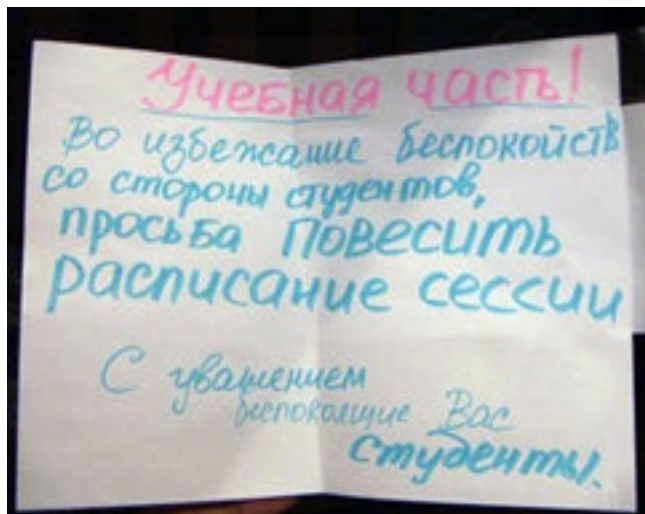 Учебная часть!
Во избежание беспокойств
со стороны студентов,
просьба повесить
расписание сессии
С уважением
беспокоящие Вас
студенты.